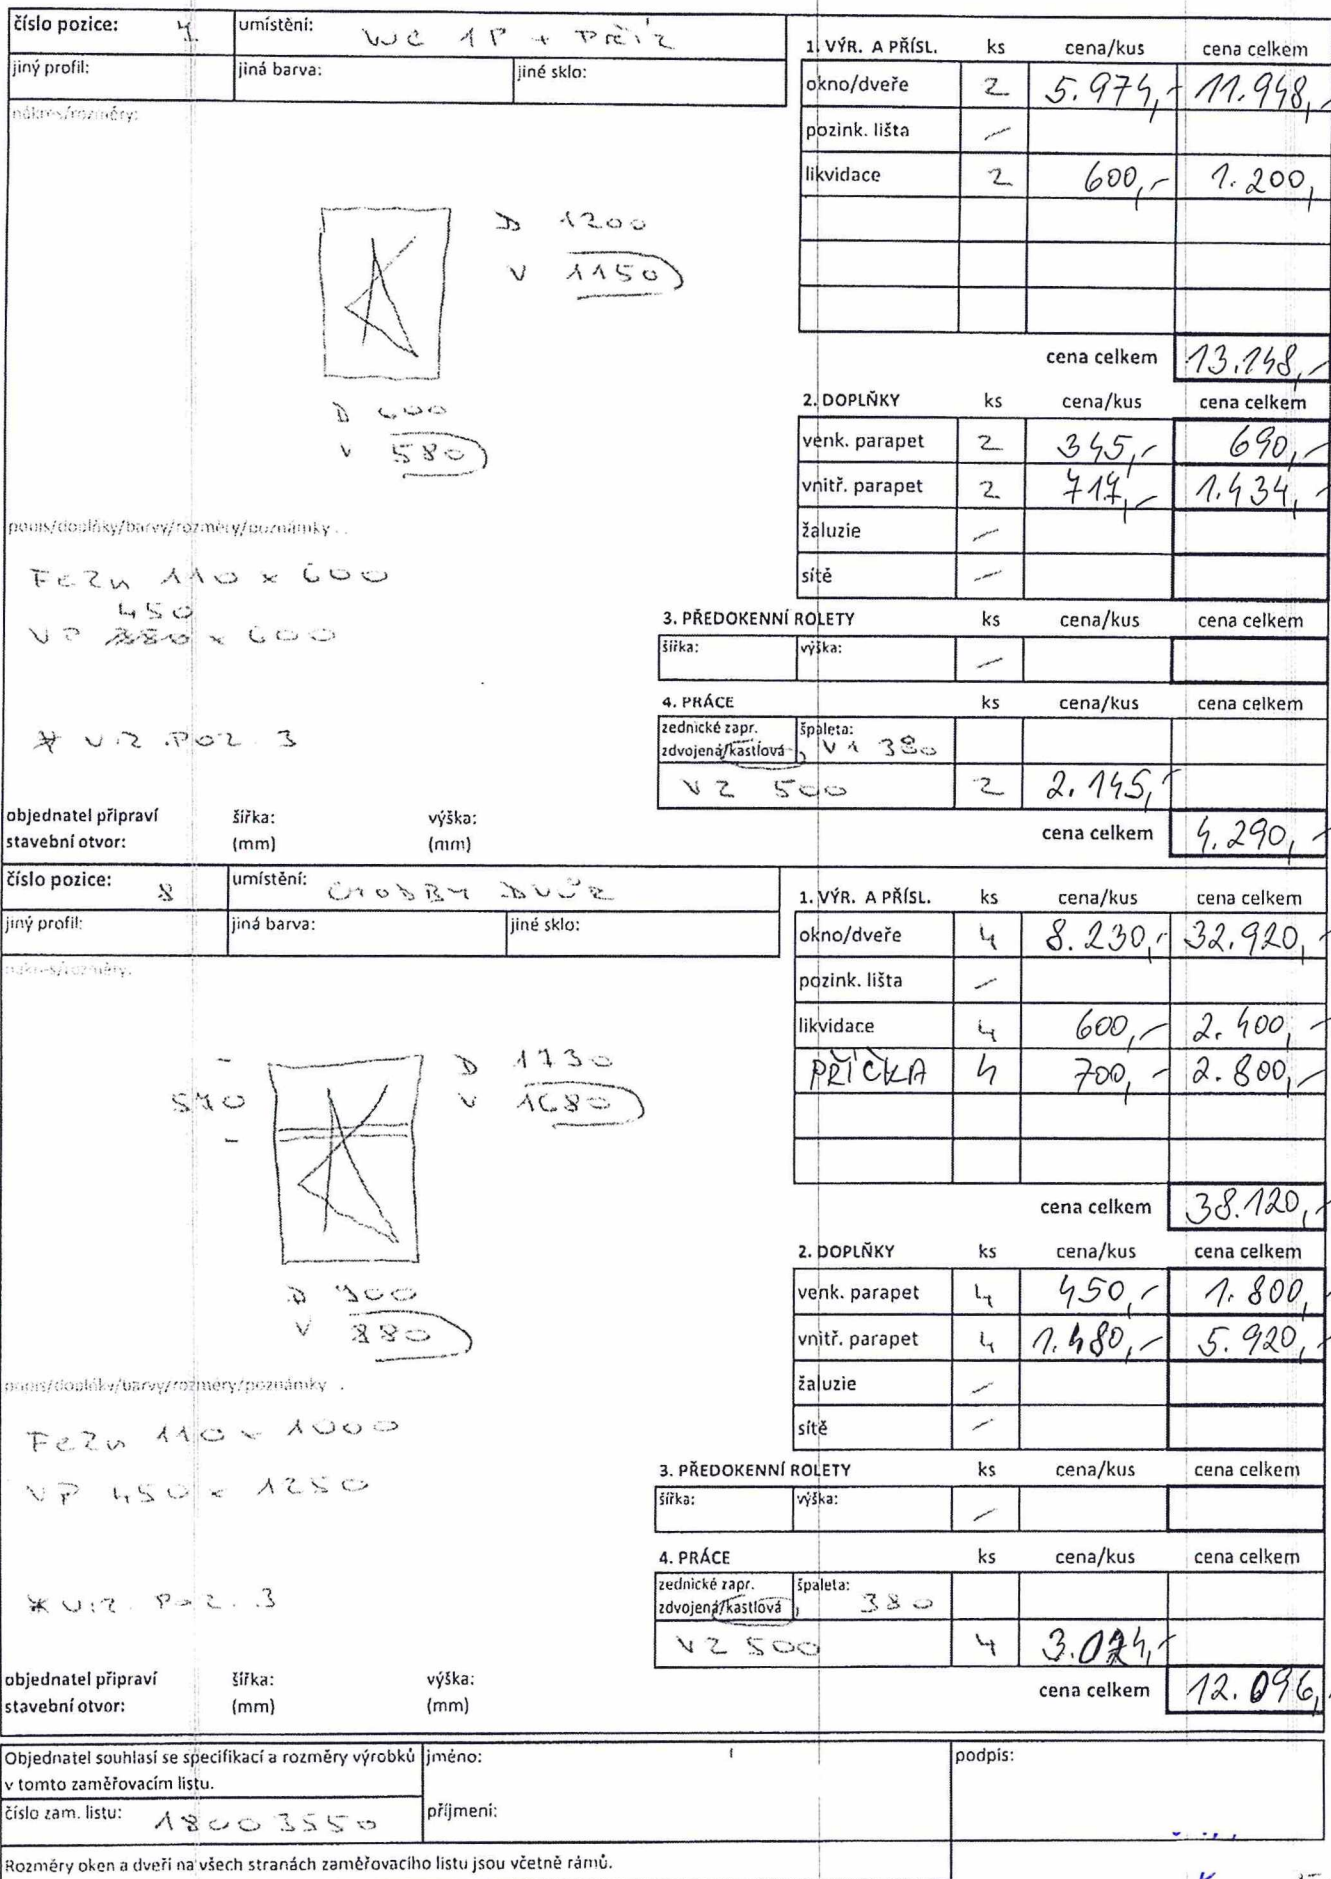 číslo pozice: 7. umístění: WC 1P + PŘÍZ
jiný profil: jiná barva: jiné sklo:
nákres/rozměry:
D 1200
V 1150
D 600
V 580
popis/doplňky/barvy/rozměry/poznámky
FeZn 110 x 600
450
VP 380 x 600
* VIZ POZ. 3
objednatel připraví šířka: výška:
stavební otvor: (mm) (mm)
1. VÝR. A PŘÍSL. ks cena/kus cena celkem
okno/dveře 2 5.974,- 11.948,-
pozink. lišta –
likvidace 2 600,- 1.200,
cena celkem 13.148,-
2. DOPLŇKY ks cena/kus cena celkem
venk. parapet 2 345,- 690,-
vnitř. parapet 2 717,- 1.434,-
žaluzie –
sítě –
3. PŘEDOKENNÍ ROLETY ks cena/kus cena celkem
šířka: výška: –
4. PRÁCE ks cena/kus cena celkem
zednické zapr. špaleta:
zdvojená/kastlová V1 380
V2 500 2 2.145,-
cena celkem 4.290,-
číslo pozice: 8 umístění: CHODBY DVŮR
jiný profil: jiná barva: jiné sklo:
nákres/rozměry:
570
D 1730
V 1680
D 900
V 880
popis/doplňky/barvy/rozměry/poznámky
FeZn 110 x 1000
VP 450 x 1250
* VIZ POZ. 3
objednatel připraví šířka: výška:
stavební otvor: (mm) (mm)
1. VÝR. A PŘÍSL. ks cena/kus cena celkem
okno/dveře 4 8.230,- 32.920,-
pozink. lišta –
likvidace 4 600,- 2.400,-
PŘÍČKA 4 700,- 2.800,-
cena celkem 38.120,-
2. DOPLŇKY ks cena/kus cena celkem
venk. parapet 4 450,- 1.800,
vnitř. parapet 4 1.480,- 5.920,-
žaluzie –
sítě –
3. PŘEDOKENNÍ ROLETY ks cena/kus cena celkem
šířka: výška: –
4. PRÁCE ks cena/kus cena celkem
zednické zapr. špaleta:
zdvojená/kastlová 380
V2 500 4 3.024,-
cena celkem 12.096,
Objednatel souhlasí se specifikací a rozměry výrobků
v tomto zaměřovacím listu.
číslo zam. listu: 18003550
jméno:
příjmení:
podpis:
Rozměry oken a dveří na všech stranách zaměřovacího listu jsou včetně rámů.